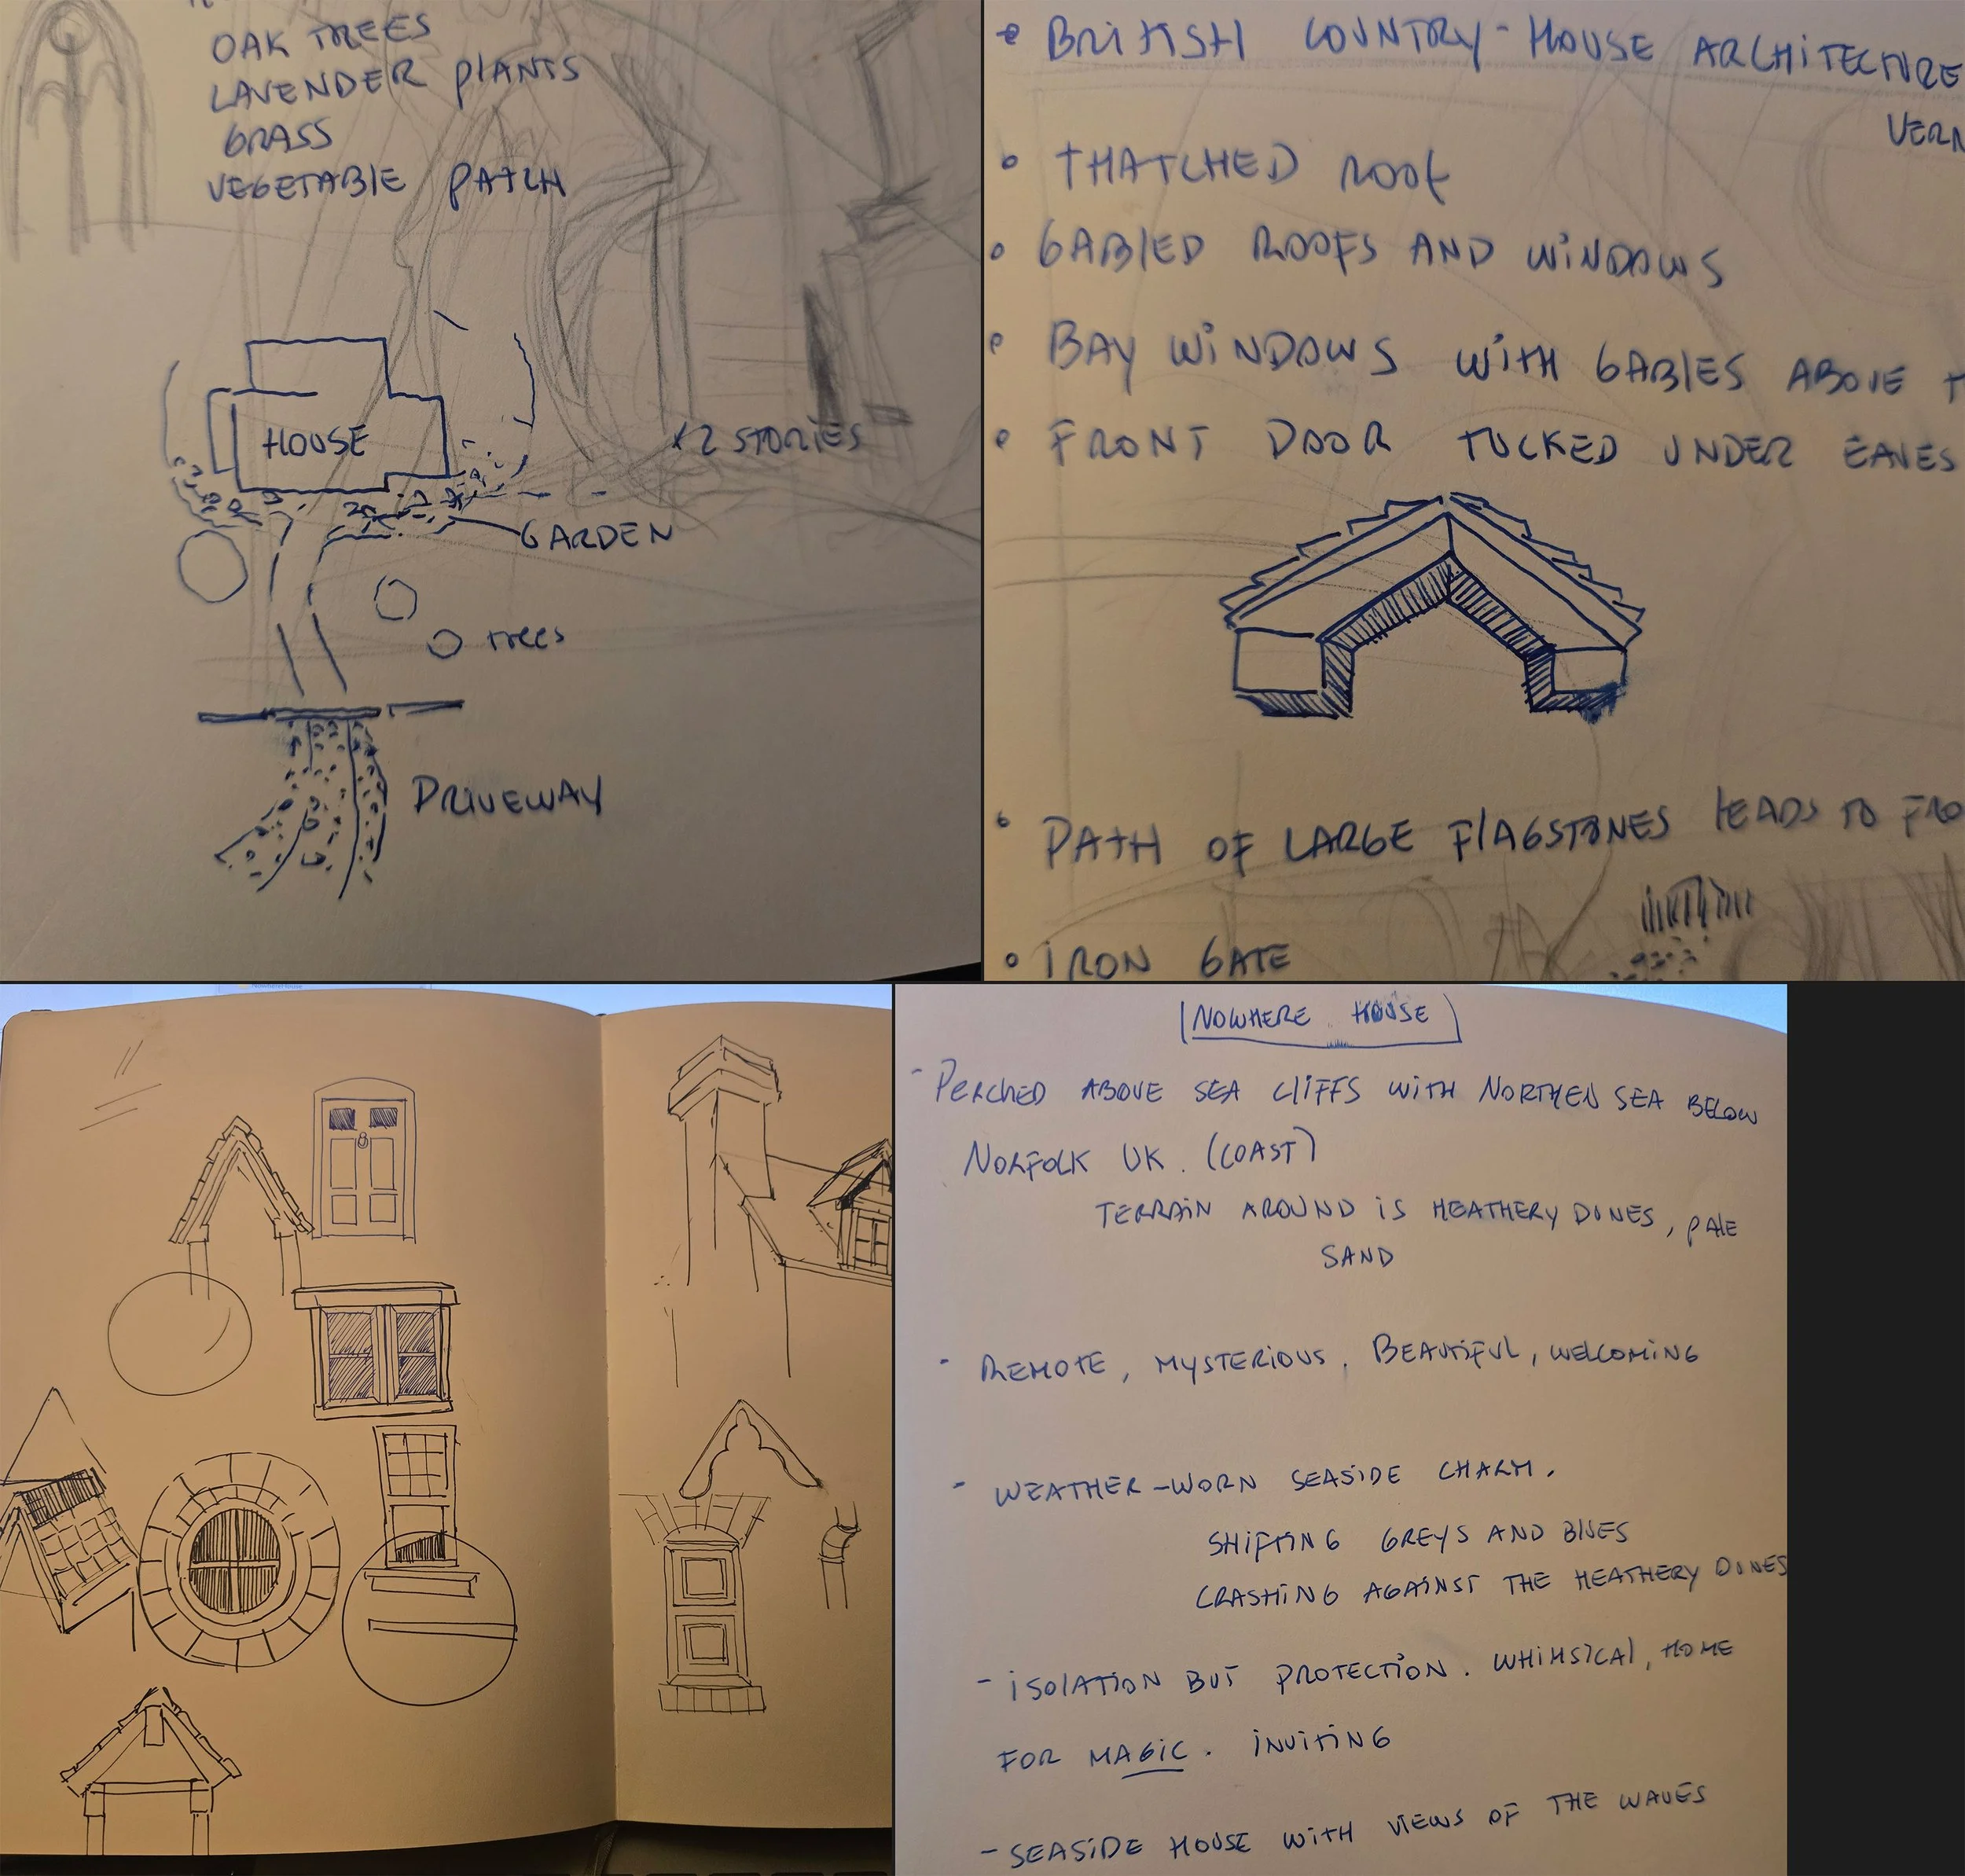 OAK TREES
LAVENDER PLANTS
GRASS
VEGETABLE PATCH
HOUSE
x2 STORIES
GARDEN
TREES
DRIVEWAY
BRITISH COUNTRY-HOUSE ARCHITECTURE
VERN
• THATCHED ROOF
• GABLED ROOFS AND WINDOWS
• BAY WINDOWS WITH GABLES ABOVE
• FRONT DOOR TUCKED UNDER EAVES
• PATH OF LARGE FLAGSTONES LEADS TO FRO
• IRON GATE
NOWHERE HOUSE
- PERCHED ABOVE SEA CLIFFS WITH NORTHEN SEA BELOW
NORFOLK UK. (COAST)
TERRAIN AROUND IS HEATHERY DUNES, PALE
SAND
- REMOTE, MYSTERIOUS, BEAUTIFUL, WELCOMING
- WEATHER-WORN SEASIDE CHARM.
SHIFTING GREYS AND BLUES
CRASHING AGAINST THE HEATHERY DUNES
- ISOLATION BUT PROTECTION. WHIMSICAL, HOME
FOR MAGIC. INVITING
- SEASIDE HOUSE WITH VIEWS OF THE WAVES